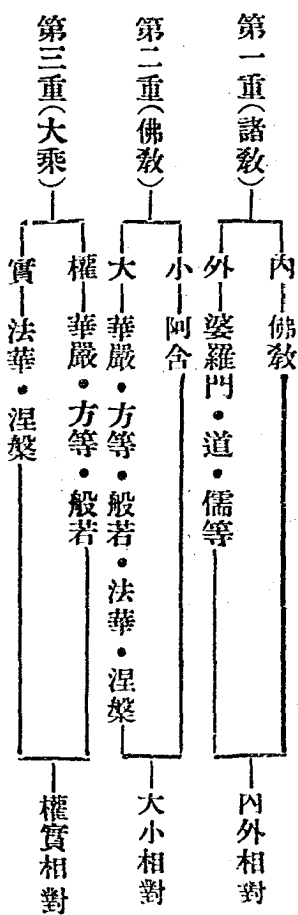 第一重(諸教)
內 佛教
外 婆羅門・道・儒等
內外相對
第二重(佛教)
小 阿含
大 華嚴・方等・般若・法華・涅槃
大小相對
第三重(大乘)
權 華嚴・方等・般若
實 法華・涅槃
權實相對